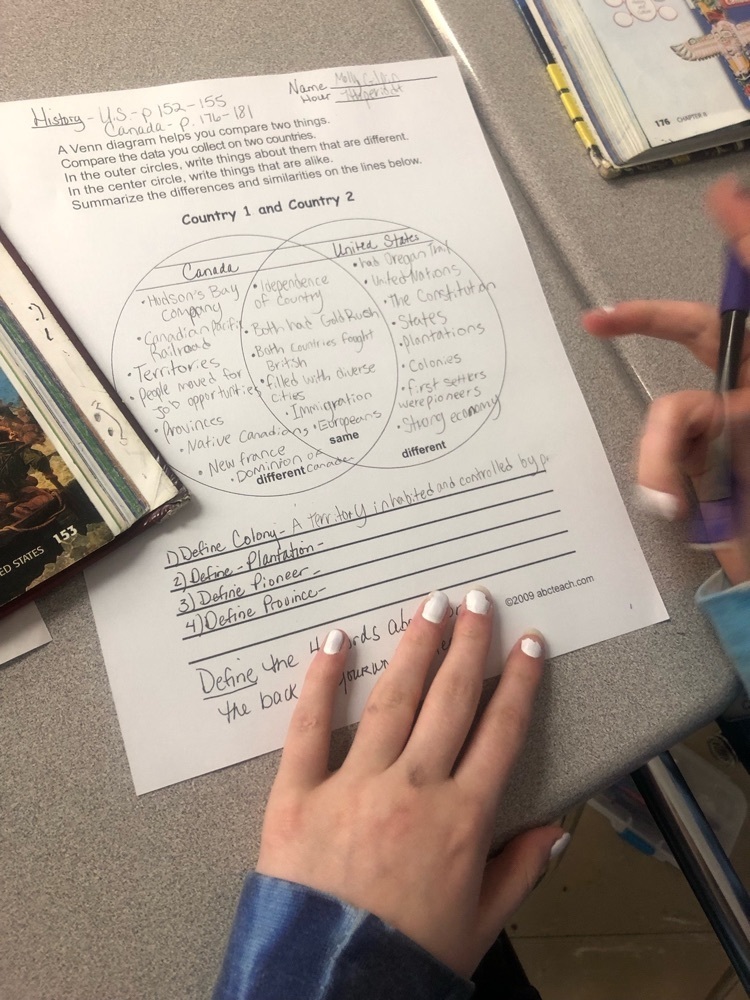 History - U.S - p 152-155
Canada - p. 176-181
Name Molly
Hour
A Venn diagram helps you compare two things.
Compare the data you collect on two countries.
In the outer circles, write things about them that are different.
In the center circle, write things that are alike.
Summarize the differences and similarities on the lines below.
Country 1 and Country 2
Canada
• Hudson's Bay
company
• Canadian Pacific
Railroad
• Territories
• People moved for
job opportunities
• Provinces
• Native Canadians
• New france
• Dominion of
canada
different
• Idependence
of country
• Both had Gold Rush
• Both countries fought
British
• filled with diverse
cities
• Immigration
• Europeans
same
United States
• had Oregon Trail
• United Nations
• The Constitution
• States
• plantations
• Colonies
• first settlers
were pioneers
• Strong economy
different
1) Define Colony - A territory inhabited and controlled by
2) Define - Plantation -
3) Define Pioneer -
4) Define Province -
©2009 abcteach.com
Define the 4
the back
176 CHAPTER 6
ED STATES 153